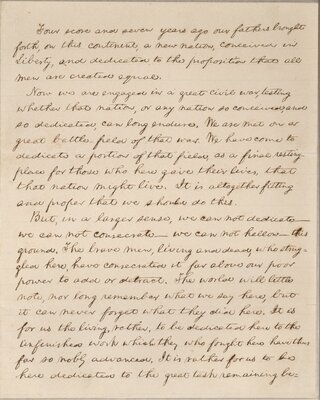 Four score and seven years ago our fathers brought
forth, on this continent, a new nation, conceived in
Liberty, and dedicated to the proposition that all
men are created equal.
Now we are engaged in a great civil war, testing
whether that nation, or any nation so conceived, and
so dedicated, can long endure. We are met on a
great battle-field of that war. We have come to
dedicate a portion of that field, as a final resting-
place for those who here gave their lives, that
that nation might live. It is altogether fitting
and proper that we should do this.
But, in a larger sense, we can not dedicate—
we can not consecrate—we can not hallow—this
ground. The brave men, living and dead, who strug-
gled here, have consecrated it far above our poor
power to add or detract. The world will little
note, nor long remember what we say here, but
it can never forget what they did here. It is
for us the living, rather, to be dedicated here to the
unfinished work which they who fought here have thus
far so nobly advanced. It is rather for us to be
here dedicated to the great task remaining be-